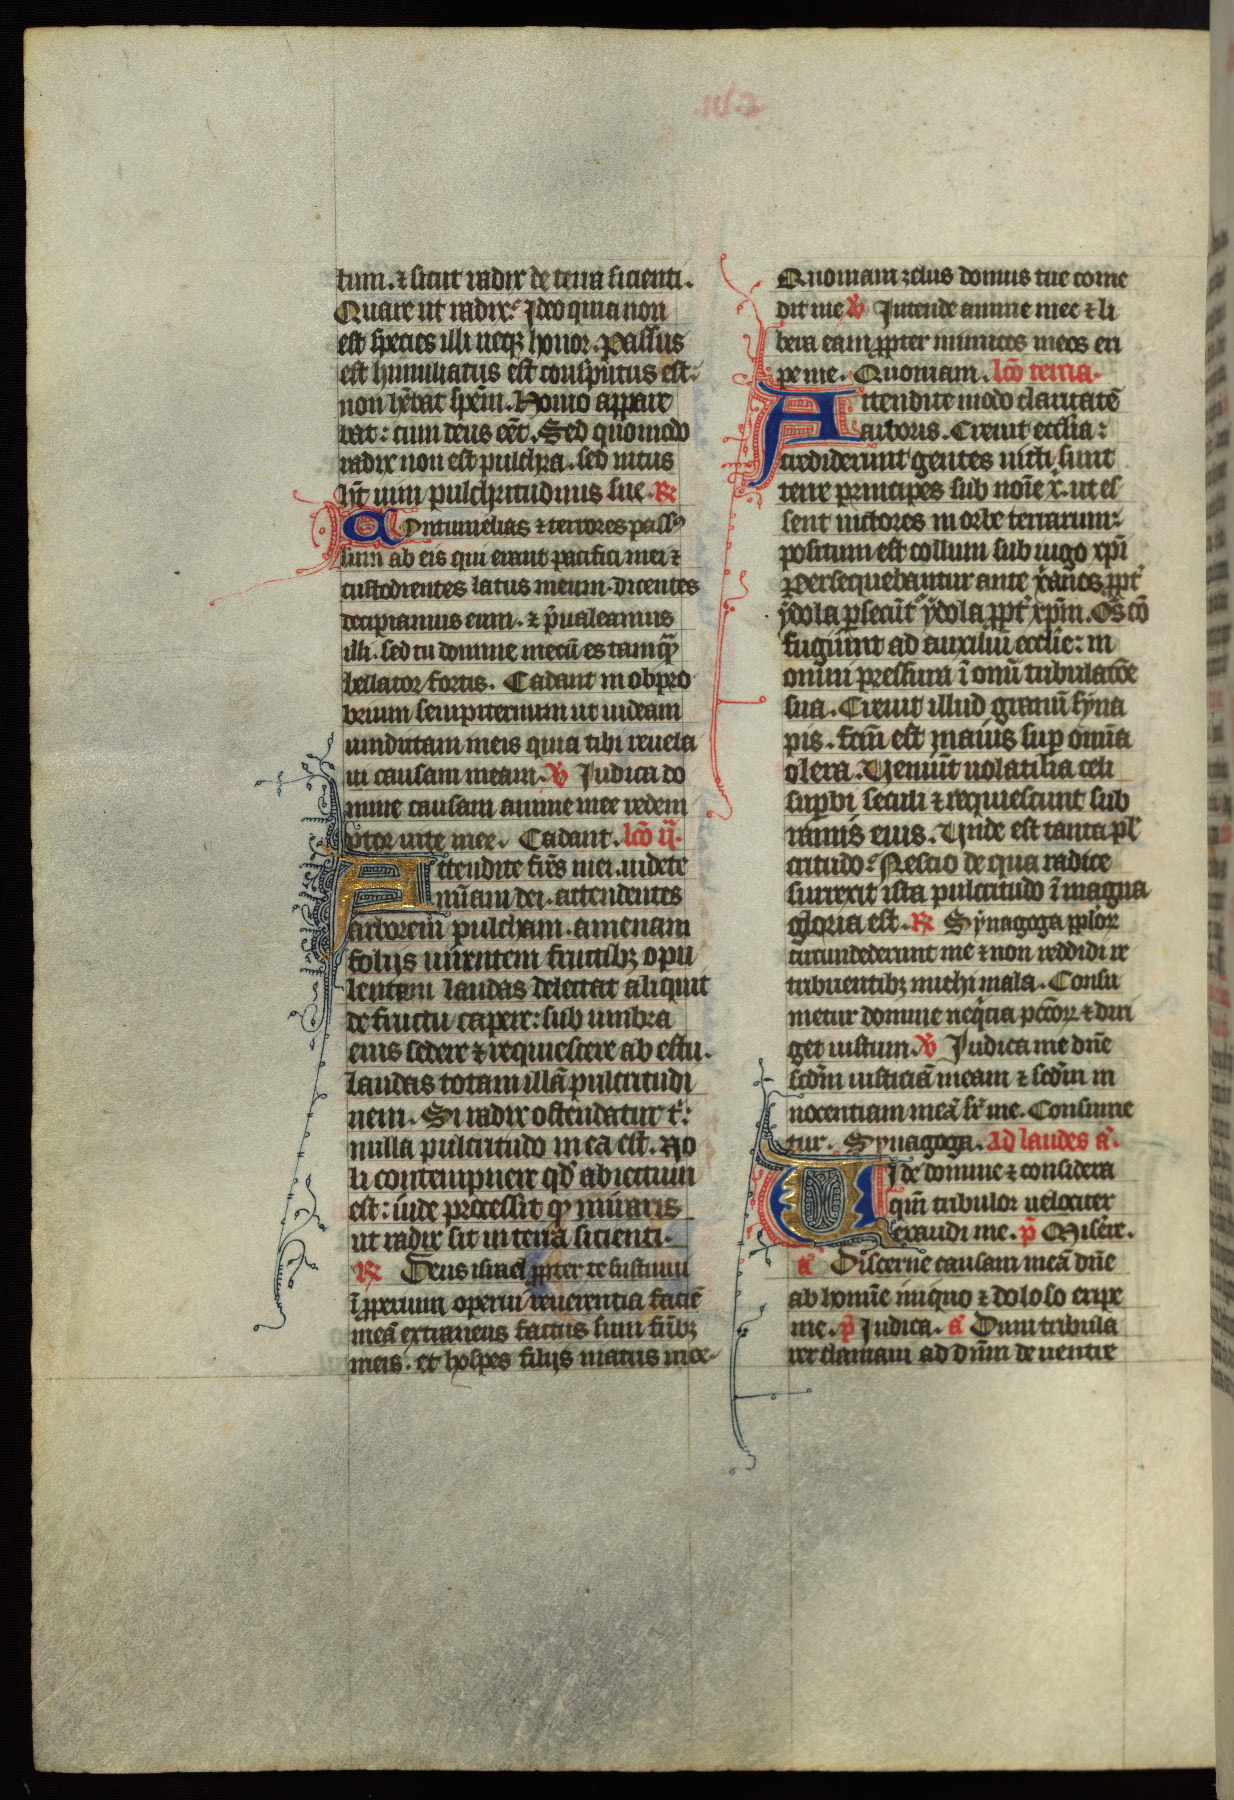 tum. ⁊ sicut radix de terra sicienti.
Quare ut radix? Ideo quia non
est species illi neqꝫ honor. Passus
est humiliatus est consputus est:
non hēbat spēm. Homo appare
bat: cum deus eēt. Sed quomodo
radix non est pulchra. sed intus
hꝫt uim pulchritudinis sue. ℟
Contumelias ⁊ terrores passꝰ
sum ab eis qui erant pacifici mei ⁊
custodientes latus meum. dicentes
decipiamus eum. ⁊ p̄ualeamus
illi. sed tu domine mecū es tamqᷓ
bellator fortis. Cadant in obpro
brium sempiternum ut uideam
uindictam meis quia tibi reuela
ui causam meam. ℣ Iudica do
mine causam anime mee redem
ptor uite mee. Cadant. lc̄o ij.
Attendite fr̄es mei. uidete
mīam dei. attendentes
arborem pulcham. amenam
folijs uirentem fructibꝫ opu
lentam laudas delectat aliquit
de fructu capere: sub umbra
eius sedere ⁊ requiescere ab estu.
laudas totam illā pulcritudi
nem. Si radix ostendatur t:
nulla pulcritudo in ea est. No
li contempnere qd̄ abiectum
est: īnde processit qꝫ miraris
ut radix sit in terrā sicienti.
℟ Deus israel ꝓpter te sustinui
īꝓperium operui reuerentia faciē
meā extraneus factus sum fr̄ibꝫ
meis. et hospes filijs matris mee
Quoniam zelus domus tue come
dit me ℣ Intende anime mee ⁊ li
bera eam ꝓpter inimicos meos eri
pe me. Quoniam. lc̄o tercia.
Attendite modo claritatē
arboris. Creuit eccl̄ia:
crediderunt gentes uicti sunt
terre principes sub noīe x̄. ut es
sent uictores in orbe terrarum:
positum est collum sub iugo xp̄i
Persequebantur ante x̄anos ꝓpt̄
ydola ꝑsecūt ydola ꝓpt̄ xp̄m. Oēs cō
fugiunt ad auxiliū eccl̄ie: in
omni pressura ī omī tribulatōe
sua. Creuit illud granū syna
pis. fcm̄ est maius suꝑ omīa
olera. Ueniūt uolatilia celi
suꝑbi seculi ⁊ requiescunt sub
ramis eius. Unde est tanta pl̄
critudo? Nescio de qua radice
surrexit ista pulcritudo ī magna
gloria est. ℟ Synagoga pplor̄
circundederunt me ⁊ non reddidi re
tribuentibꝫ michi mala. Consu
metur domine neq̄cia pctōꝝ ⁊ diri
get iustum. ℣ Iudica me dn̄e
scdm̄ iusticiā meam ⁊ scdm̄ in
nocentiam meā sr̄ me. Consume
tur. Synagoga. Ad laudes a.
Uide domine ⁊ considera
qm̄ tribulor uelociter
exaudi me. p̄ Misere.
a Discerne causam meā dn̄e
ab homīe iniquo ⁊ doloso eripe
me. p̄ Iudica. a Dum tribula
rer clamaui ad dn̄m de uentre